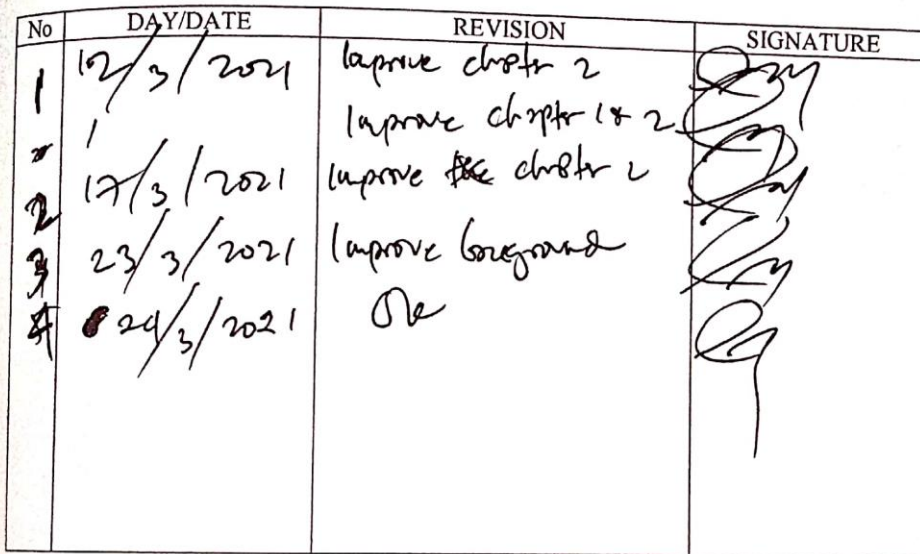 No DAY/DATE REVISION SIGNATURE
1 12/3/2021 Improve chapter 2
Improve chapter 1 & 2
2 17/3/2021 Improve chapter 2
3 23/3/2021 Improve background
4 24/3/2021 Ok